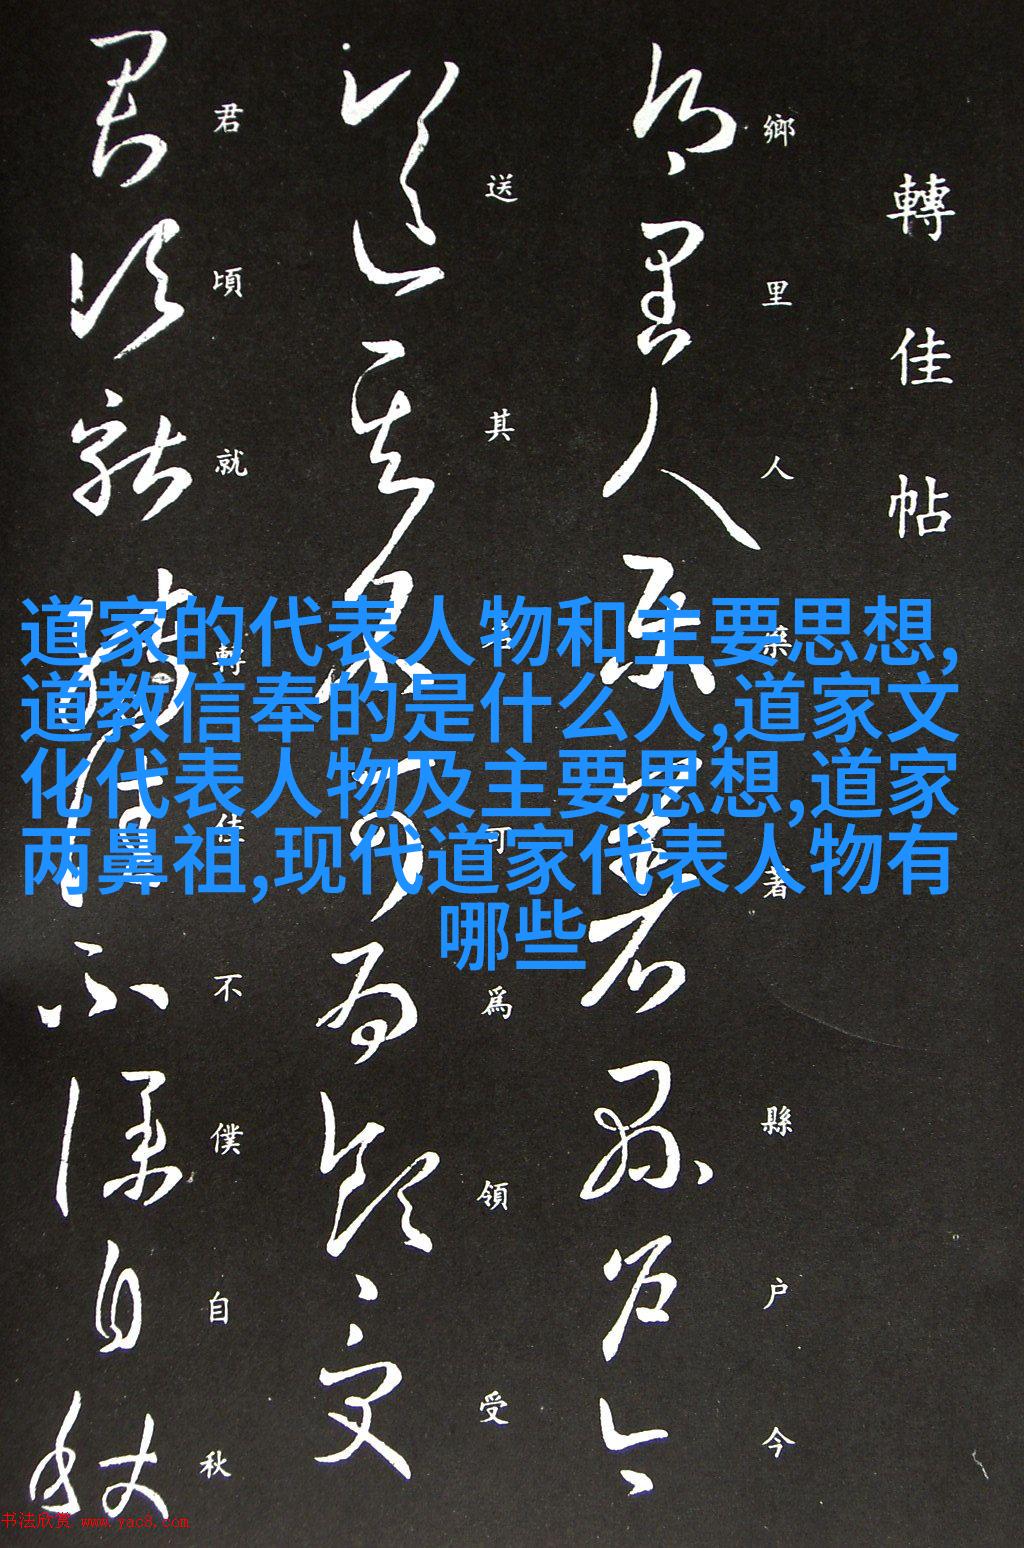 轉佳帖
鄉里人縣著縣户今
送其君可爲領受
君頃就轉佳不僕自秋
道家的代表人物和主要思想,
道教信奉的是什么人,道家文
化代表人物及主要思想,道家
两鼻祖,现代道家代表人物有
哪些
书法欣赏 www.yac8.com